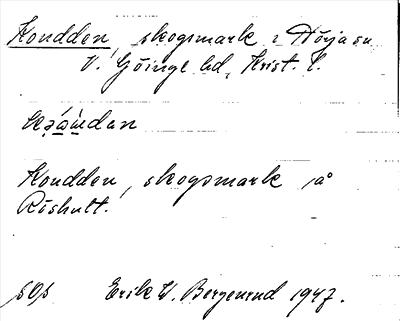 Kondden, skogsmark i Nörja sn
V. Göinge hd, Krist. l.
Kondden, skogsmark på
Röshult.
sOs Erik W. Bergenrud 1947.